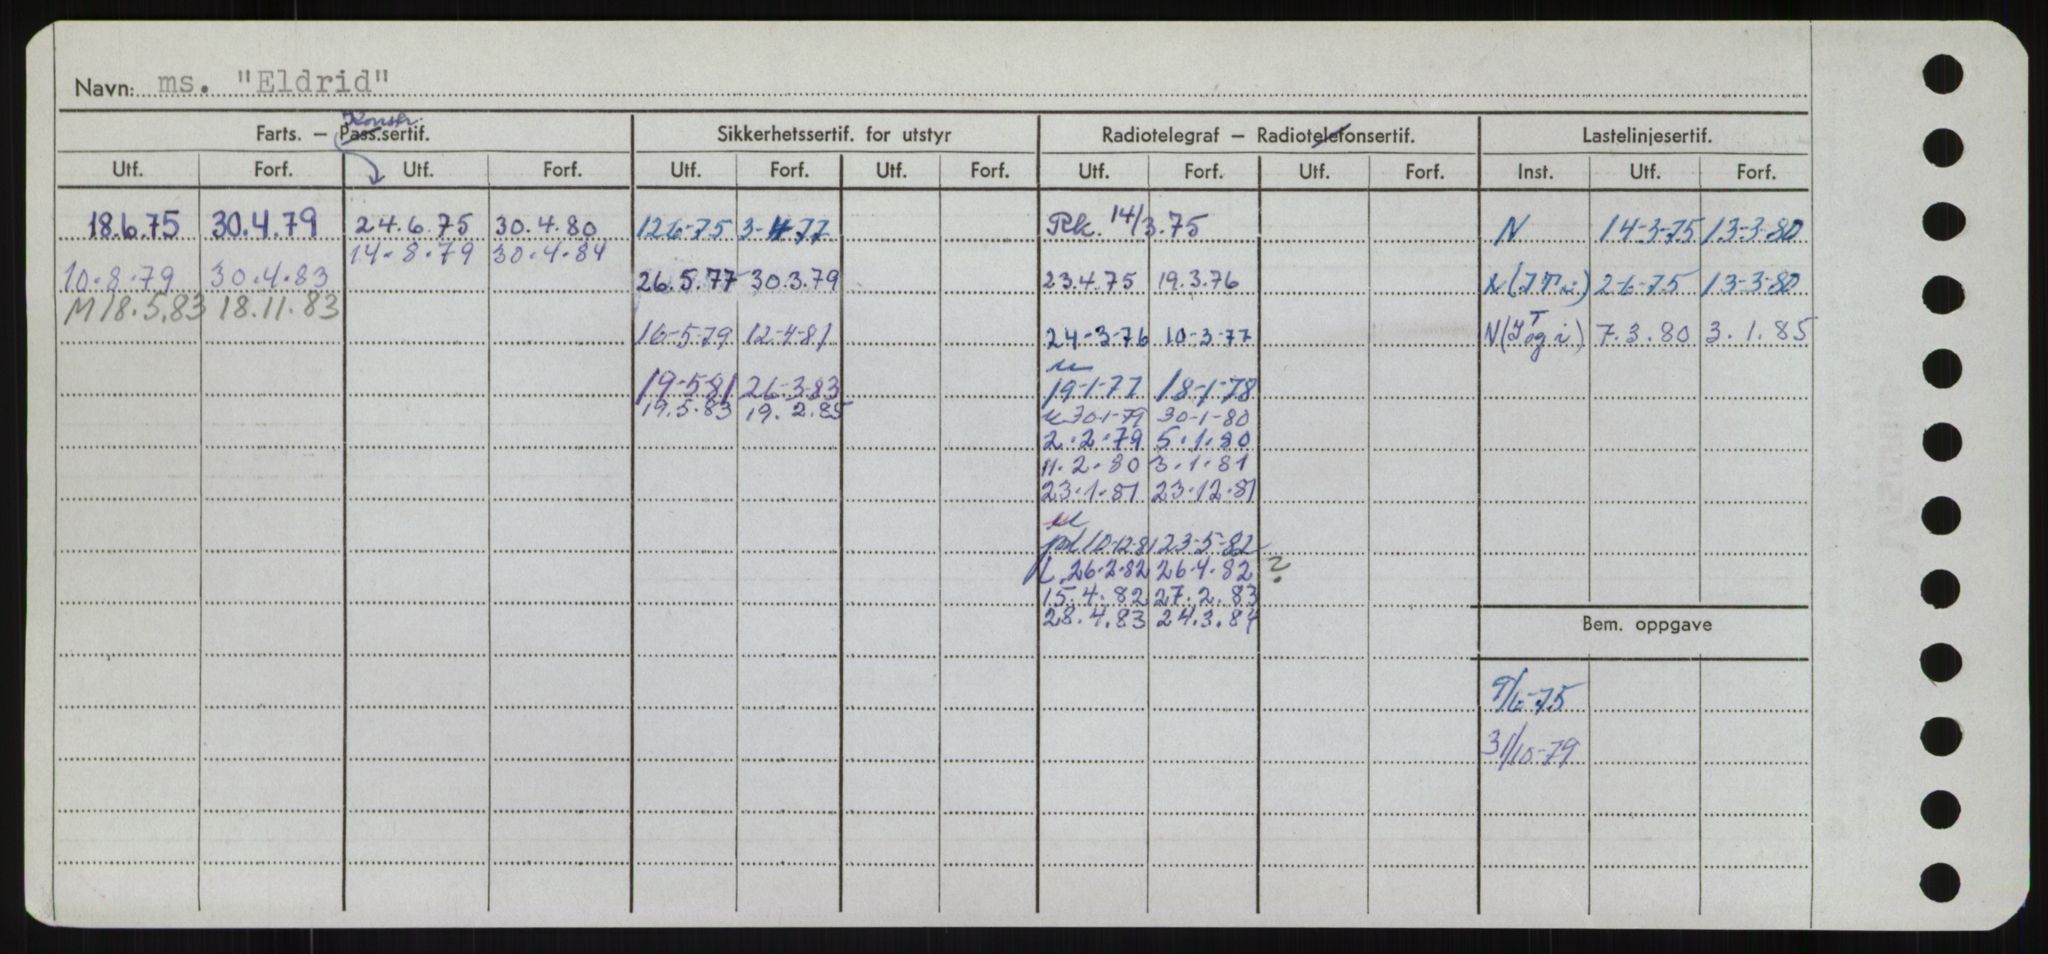 Navn: ms. "Eldrid"
Konstr.
Farts. — Pass.sertif. Sikkerhetssertif. for utstyr Radiotelegraf — Radiotelefonsertif. Lastelinjesertif.
Utf. Forf. Utf. Forf. Utf. Forf. Utf. Forf. Utf. Forf. Utf. Forf. Inst. Utf. Forf.
18.6.75 30.4.79 24.6.75 30.4.80 12-6-75 3-4-77 Rk. 14/3.75 N 14-3-75 13-3-80
14.8.79 30.4.84
10.8.79 30.4.83 26.5.77 30.3.79 23.4.75 19.3.76 N 2-6-75 13-3-80
M 18.5.83 18.11.83
16-5-79 12-4-81 24-3-76 10-3-77 N 7.3.80 3.1.85
u
19-5-81 26-3-83 19-1-77 18-1-78
19.5.83 19.2.85 u 30-1-79 30-1-80
2.2.79 5.1.80
11.2.80 3.1.81
23.1.81 23.12.81
u
10-12-81 23-5-82
L. 26.2.82 26.4.82 ?
15.4.82 27.2.83
28.4.83 24.3.84
Bem. oppgave
9/6-75
31/10-79